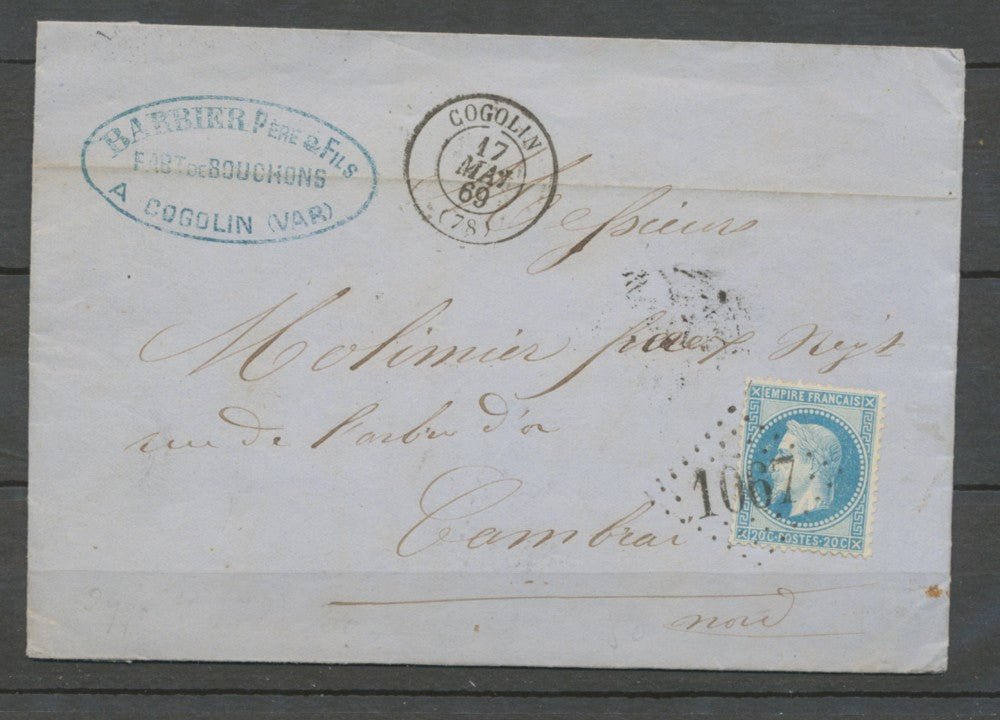 BARBIER PÈRE & FILS
FABT DE BOUCHONS
A COGOLIN (VAR)
COGOLIN
17
MAI
69
(78)
Messieurs
Molimier frères Negt
rue de l'arbre d'or
Cambrai
nord
EMPIRE FRANÇAIS
1067
20C·POSTES·20C